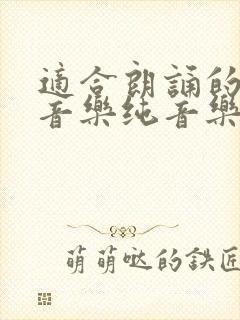 適合朗誦的
音樂纯音樂
萌萌哒的鉄匠